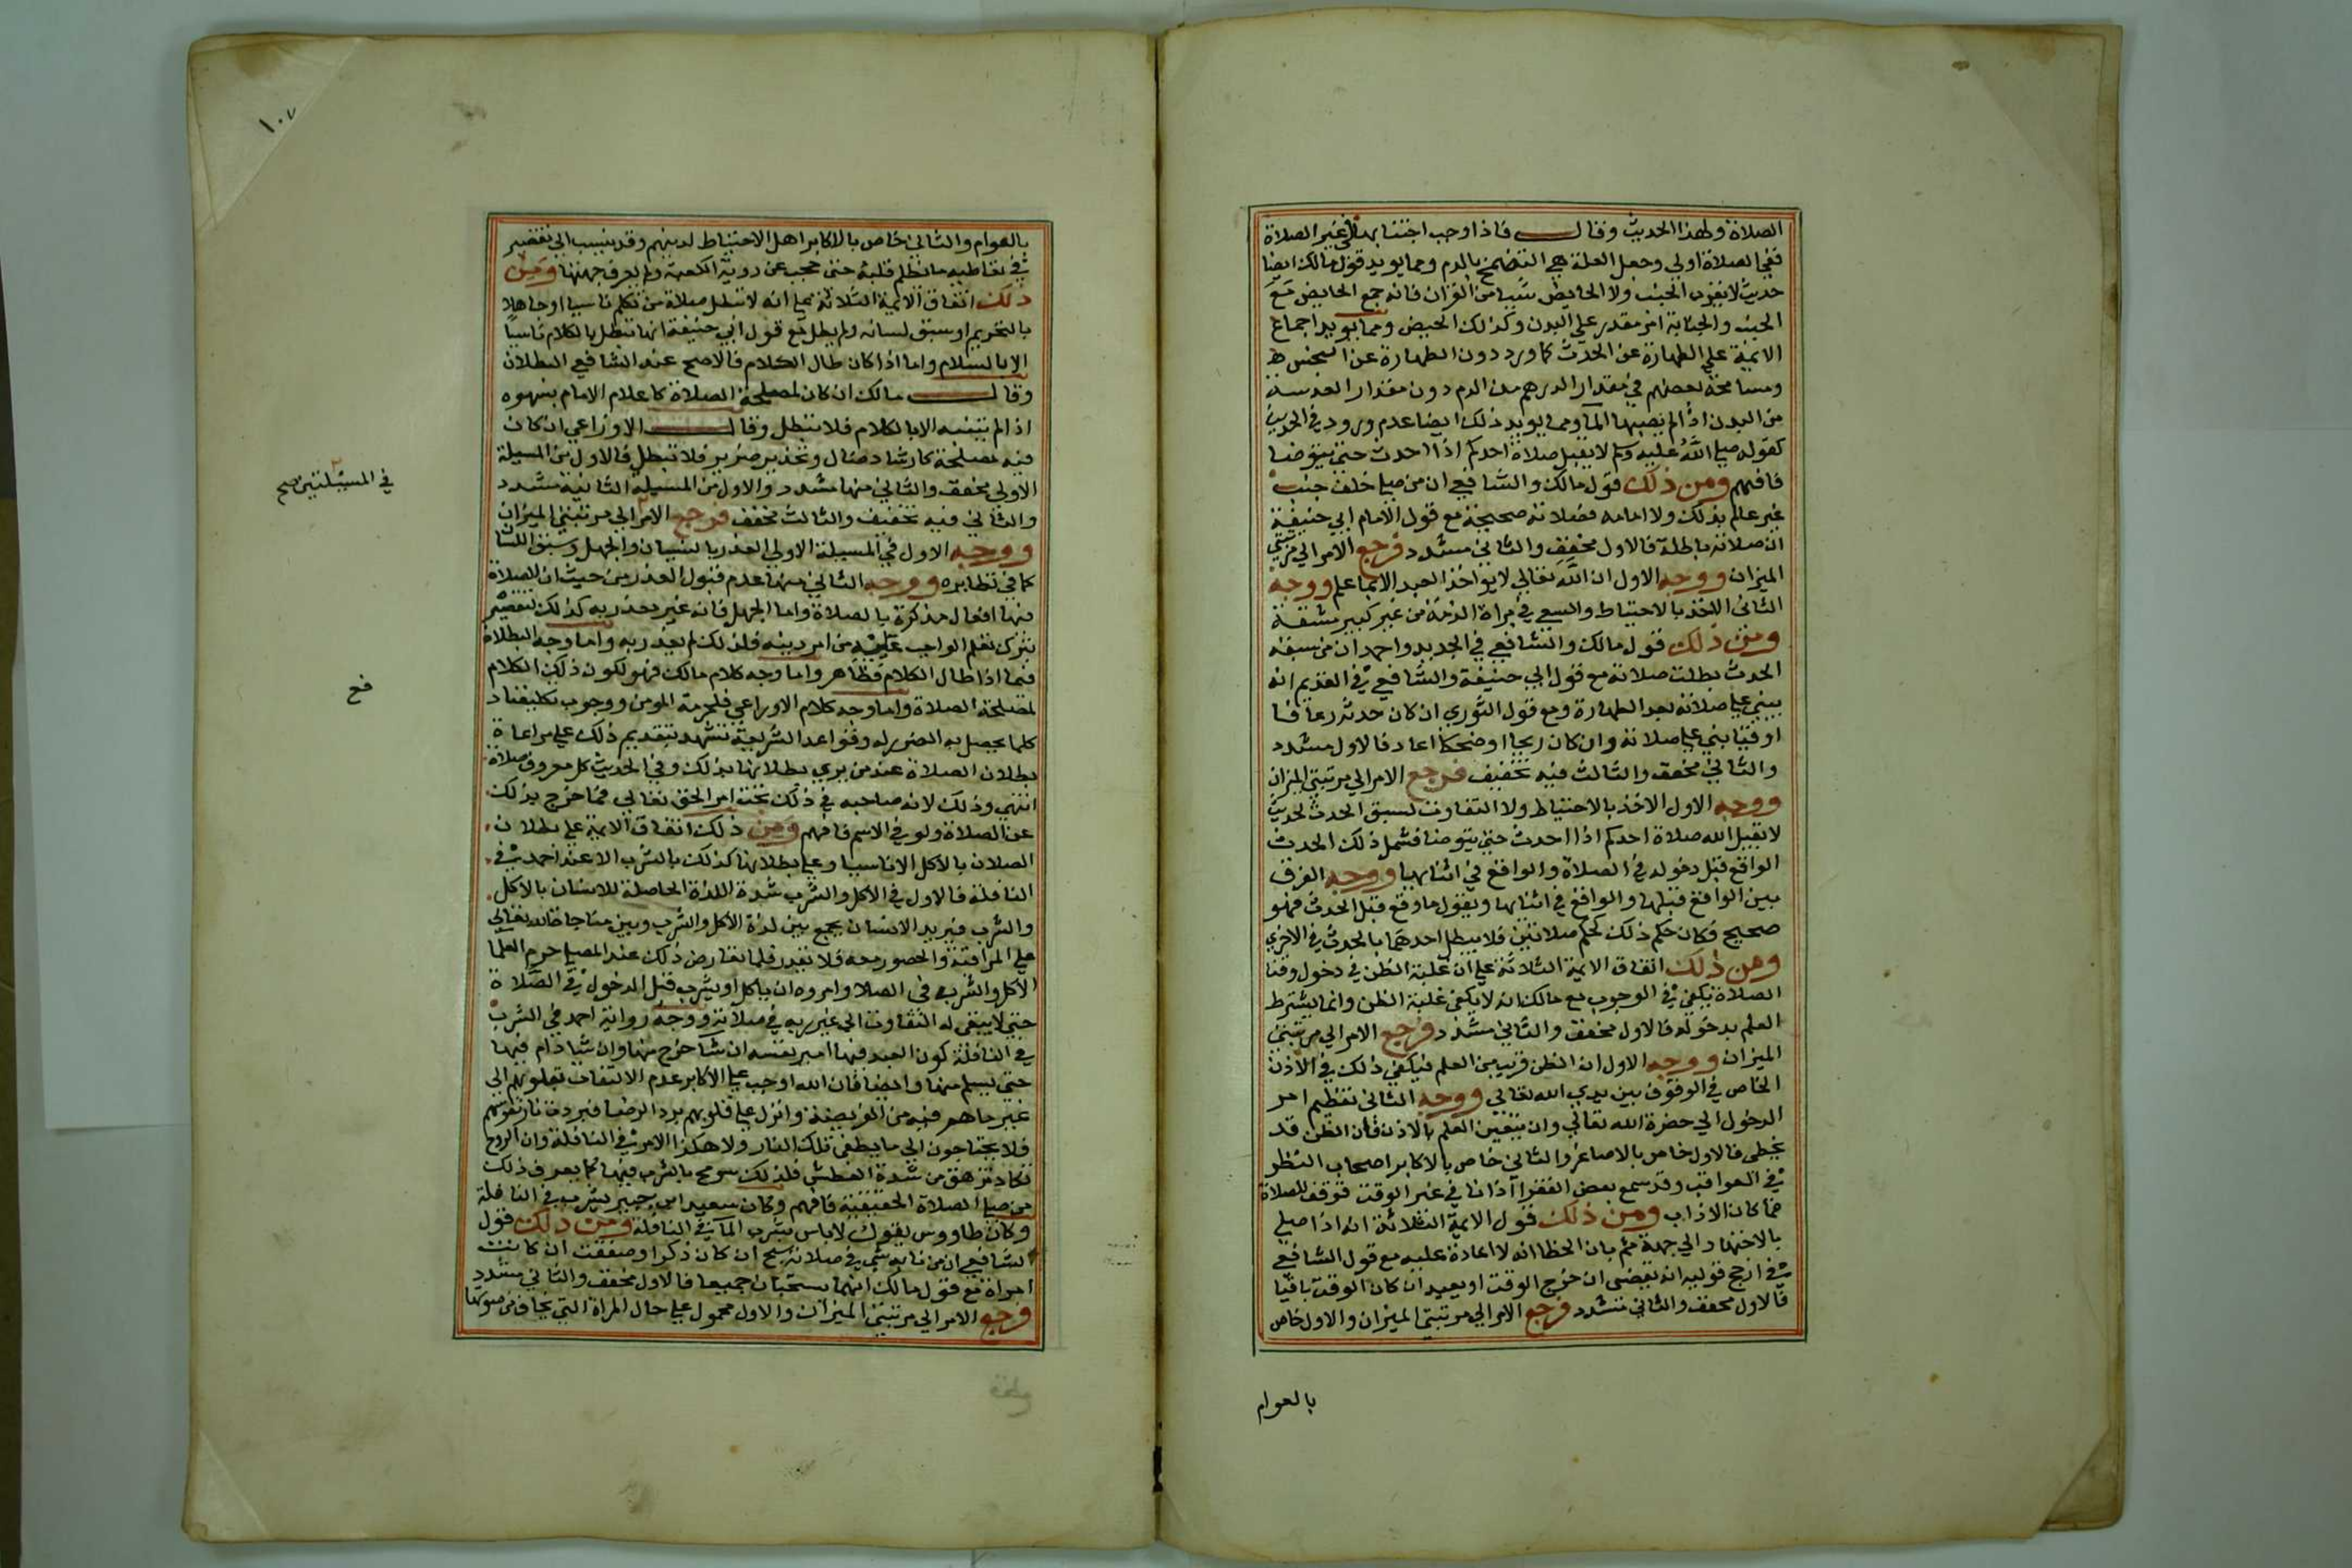 الصلاة ولهذا الحديث وقال فاذا وجب اجتنابها في غير الصلاة
ففي الصلاة اولي وجعل العلة هي التضمخ بالدم ومما يويد قول مالك ايضا
حديث لا يقرب الجنب ولا الحايض شيا من القران فانه جمع الحايض مع
الجنب والجنابة امر مقدر علي البدن وكذلك الحيض ومما يويد اجماع
الايمة علي الطهارة عن الحدث كما ورد دون الطهارة عن النجس
ومسامحة بعضهم في مقدار الدرهم من الدم دون مقدار العدسة
من البدن اذا لم يصبها الما ومما يويد ذلك ايضا عدم ورود في الحديث
كقوله صلي الله عليه وسلم لا يقبل صلاة احدكم اذا احدث حتي يتوضا
فافهم ومن ذلك قول مالك والشافعي ان من صلي خلف جنب
غير عالم بذلك ولا امامه فصلاته صحيحة مع قول الامام ابي حنيفة
ان صلاته باطلة فالاول مخفف والثاني مشدد فرجع الامر الي مرتبتي
الميزان ووجه الاول ان الله تعالي لا يواخذ العبد الا بما علم ووجه
الثاني الاخذ بالاحتياط والسعي في براة الذمة من غير كبير مشقة
ومن ذلك قول مالك والشافعي في الجديد واحمد ان من سبقه
الحدث بطلت صلاته مع قول ابي حنيفة والشافعي في القديم انه
يبني علي صلاته بعد الطهارة ومع قول الثوري ان كان حدثه رعافا
او قيا بني علي صلاته وان كان ريحا او ضحكا اعاد فالاول مشدد
والثاني مخفف والثالث فيه تخفيف فرجع الامر الي مرتبتي الميزان
ووجه الاول الاخذ بالاحتياط ولا التفاوت لسبق الحدث لحديث
لا يقبل الله صلاة احدكم اذا احدث حتي يتوضا فشمل ذلك الحدث
الواقع قبل دخوله في الصلاة والواقع في اثنايها ووجه الفرق
بين الواقع قبلها والواقع في اثنايها ويقول ما وقع قبل الحدث فهو
صحيح فكان حكم ذلك كحكم صلاتين فلا يبطل احدهما بالحدث في الاخري
ومن ذلك اتفاق الايمة الثلاثة علي ان غلبة الظن في دخول وقت
الصلاة يكفي في الوجوب مع مالك انه لا يكفي غلبة الظن وانما يشترط
العلم بدخوله فالاول مخفف والثاني مشدد فرجع الامر الي مرتبتي
الميزان ووجه الاول ان الظن قريب من العلم فيكفي ذلك في الاذن
الخاص في الوقوف بين يدي الله تعالي ووجه الثاني تعظيم امر
الدخول الي حضرة الله تعالي وان يتعين العلم بالاذن فان الظن قد
يخطي فالاول خاص بالاصاغر والثاني خاص بالاكابر اصحاب النظر
في العواقب وقد سمع بعض الفقرا اذانا في غير الوقت فوقف للصلاة
فما كان الا ذاب ومن ذلك قول الايمة الثلاثة انه اذا صلي
بالاجتهاد الي جهة ثم بان الخطا انه لا اعادة عليه مع قول الشافعي
في ارجح قوليه انه يقضي ان خرج الوقت او يعيد ان كان الوقت باقيا
فالاول مخفف والثاني مشدد فرجع الامر الي مرتبتي الميزان والاول خاص
بالعوام
١٠٧
بالعوام والثاني خاص بالاكابر اهل الاحتياط لدينهم وقد ينسب الي تقصير
في تعاطيه ما يظلم قلبه حتي حجب عن روية الكعبة ولم يعرف جهتها ومن
ذلك اتفاق الايمة الثلاثة علي انه لا تبطل صلاة من تكلم ناسيا او جاهلا
بالتحريم او سبق لسانه ولم يطل مع قول ابي حنيفة انها تبطل بالكلام ناسيا
الا بالسلام واما اذا كان طال الكلام فالاصح عند الشافعي البطلان
وقال مالك ان كان لمصلحة الصلاة كاعلام الامام بسهوه
اذا لم يتنبه الا بالكلام فلا تبطل وقال الاوزاعي ان كان
فيه مصلحة كارشاد ضال وتحذير ضرير فلا تبطل فالاول من المسيلة
الاولي مخفف والثاني منها مشدد والاول من المسيلة الثانية مشدد
والثاني فيه تخفيف والثالث مخفف فرجع الامر الي مرتبتي الميزان
في المسيلتين صح
ووجه الاول في المسيلة الاولي العذر بالنسيان والجهل وسبق اللسان
كما في نظايره ووجه الثاني منها عدم قبول العذر من حيث ان الصلاة
فيها افعال مذكرة بالصلاة واما الجهل فانه غير معذر به كذلك لتقصير
بترك تعلم الواجب عليه من امر دينه فلذلك لم يعذر به واما وجه البطلان
فيما اذا طال الكلام فظاهر واما وجه كلام مالك فهو لكون ذلك الكلام
لمصلحة الصلاة واما وجه كلام الاوزاعي فلحرمة المومن ووجوب تكليفنا د
فع
كلما يحصل به الضرر له وقواعد الشريعة تشهد بتقديم ذلك علي مراعاة
بطلان الصلاة عند من يري بطلانها بذلك وفي الحديث كل معروف صلاة
انتهي وذلك لانه صاحبه في ذلك تحت امر الحق تعالي فما خرج بذلك
عن الصلاة ولو في الاسم فافهم ومن ذلك اتفاق الايمة علي بطلان
الصلان بالاكل الا ناسيا وعلي بطلانها كذلك بالشرب الا عند احمد في
النافلة فالاول في الاكل والشرب شدة اللذة الحاصلة للانسان بالاكل
والشرب فيريد الانسان يجمع بين لذة الاكل والشرب وبين مناجاة الله تعالي
علي المراقبة والحضور معه فلا تقدر فلما تعارض ذلك عند المصلي حرم العلما
الاكل والشرب في الصلا وامروه ان ياكل او يشرب قبل الدخول في الصلاة
حتي لا يبقي له التفاوت الي غير ربه في صلاته ووجه رواية احمد في الشرب
في النافلة كون العبد فيها امير نفسه ان شا خرج منها وان شا دام فيها
حتي يسلم منها وايضا فان الله اوجب علي الاكابر عدم الالتفات بقلوبهم الي
غير ما هم فيه من الفريضة وانزل علي قلوبهم برد الرضا فبردت نار نفوسهم
فلا يحتاجون الي ما يطفي تلك النار ولا هكذا الامر في النافلة وان الروح
تكاد تزهق من شدة العطش فلذلك سومح بالشرب فيها كما يعرف ذلك
من صلي الصلاة الحقيقية فافهم وكان سعيد ابن جبير يشرب في النافلة
وكان طاووس يقول لا باس بشرب الما في النافلة ومن ذلك قول
الشافعي ان من نابه شي في صلاته سبح ان كان ذكرا وصفقت ان كانت
امراة مع قول مالك انهما يستحبان جميعا فالاول مخفف والثاني مشدد
فرجع الامر الي مرتبتي الميزان والاول محمول علي حال المراة التي يخاف من صوتها